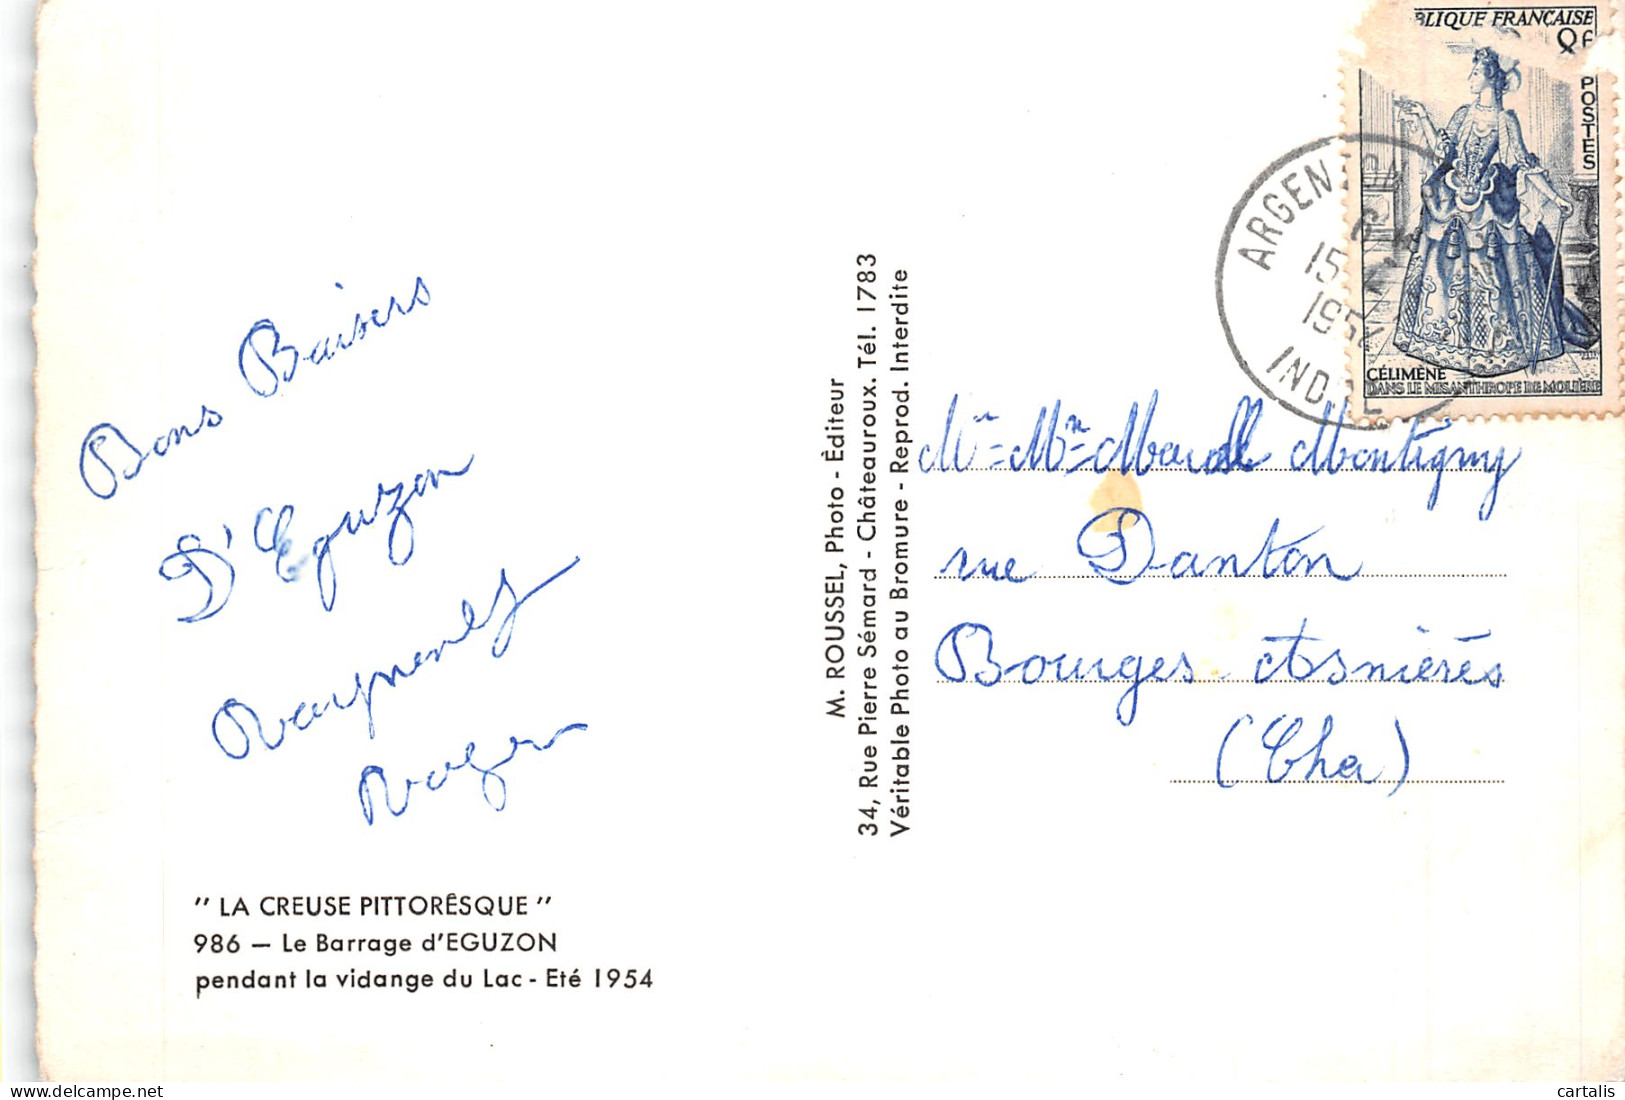 Bons Baisers
D'Eguzon
Roger
" LA CREUSE PITTORÊSQUE "
986 — Le Barrage d'EGUZON
pendant la vidange du Lac - Eté 1954
M. ROUSSEL, Photo - Éditeur
34, Rue Pierre Sémard - Châteauroux. Tél. 1783
Véritable Photo au Bromure - Reprod. Interdite
BLIQUE FRANÇAISE
8f
POSTES
CÉLIMÈNE
DANS LE MISANTHROPE DE MOLIÈRE
ARGENTON
15
INDRE
Mr = Mme = Marcel Montigny
rue Danton
Bourges - Asnières
(Cher)
cartalis